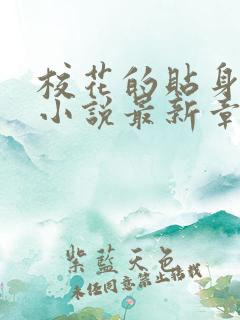 校花的貼身
小說最新章
紫藍天色
未经同意禁止搭讪